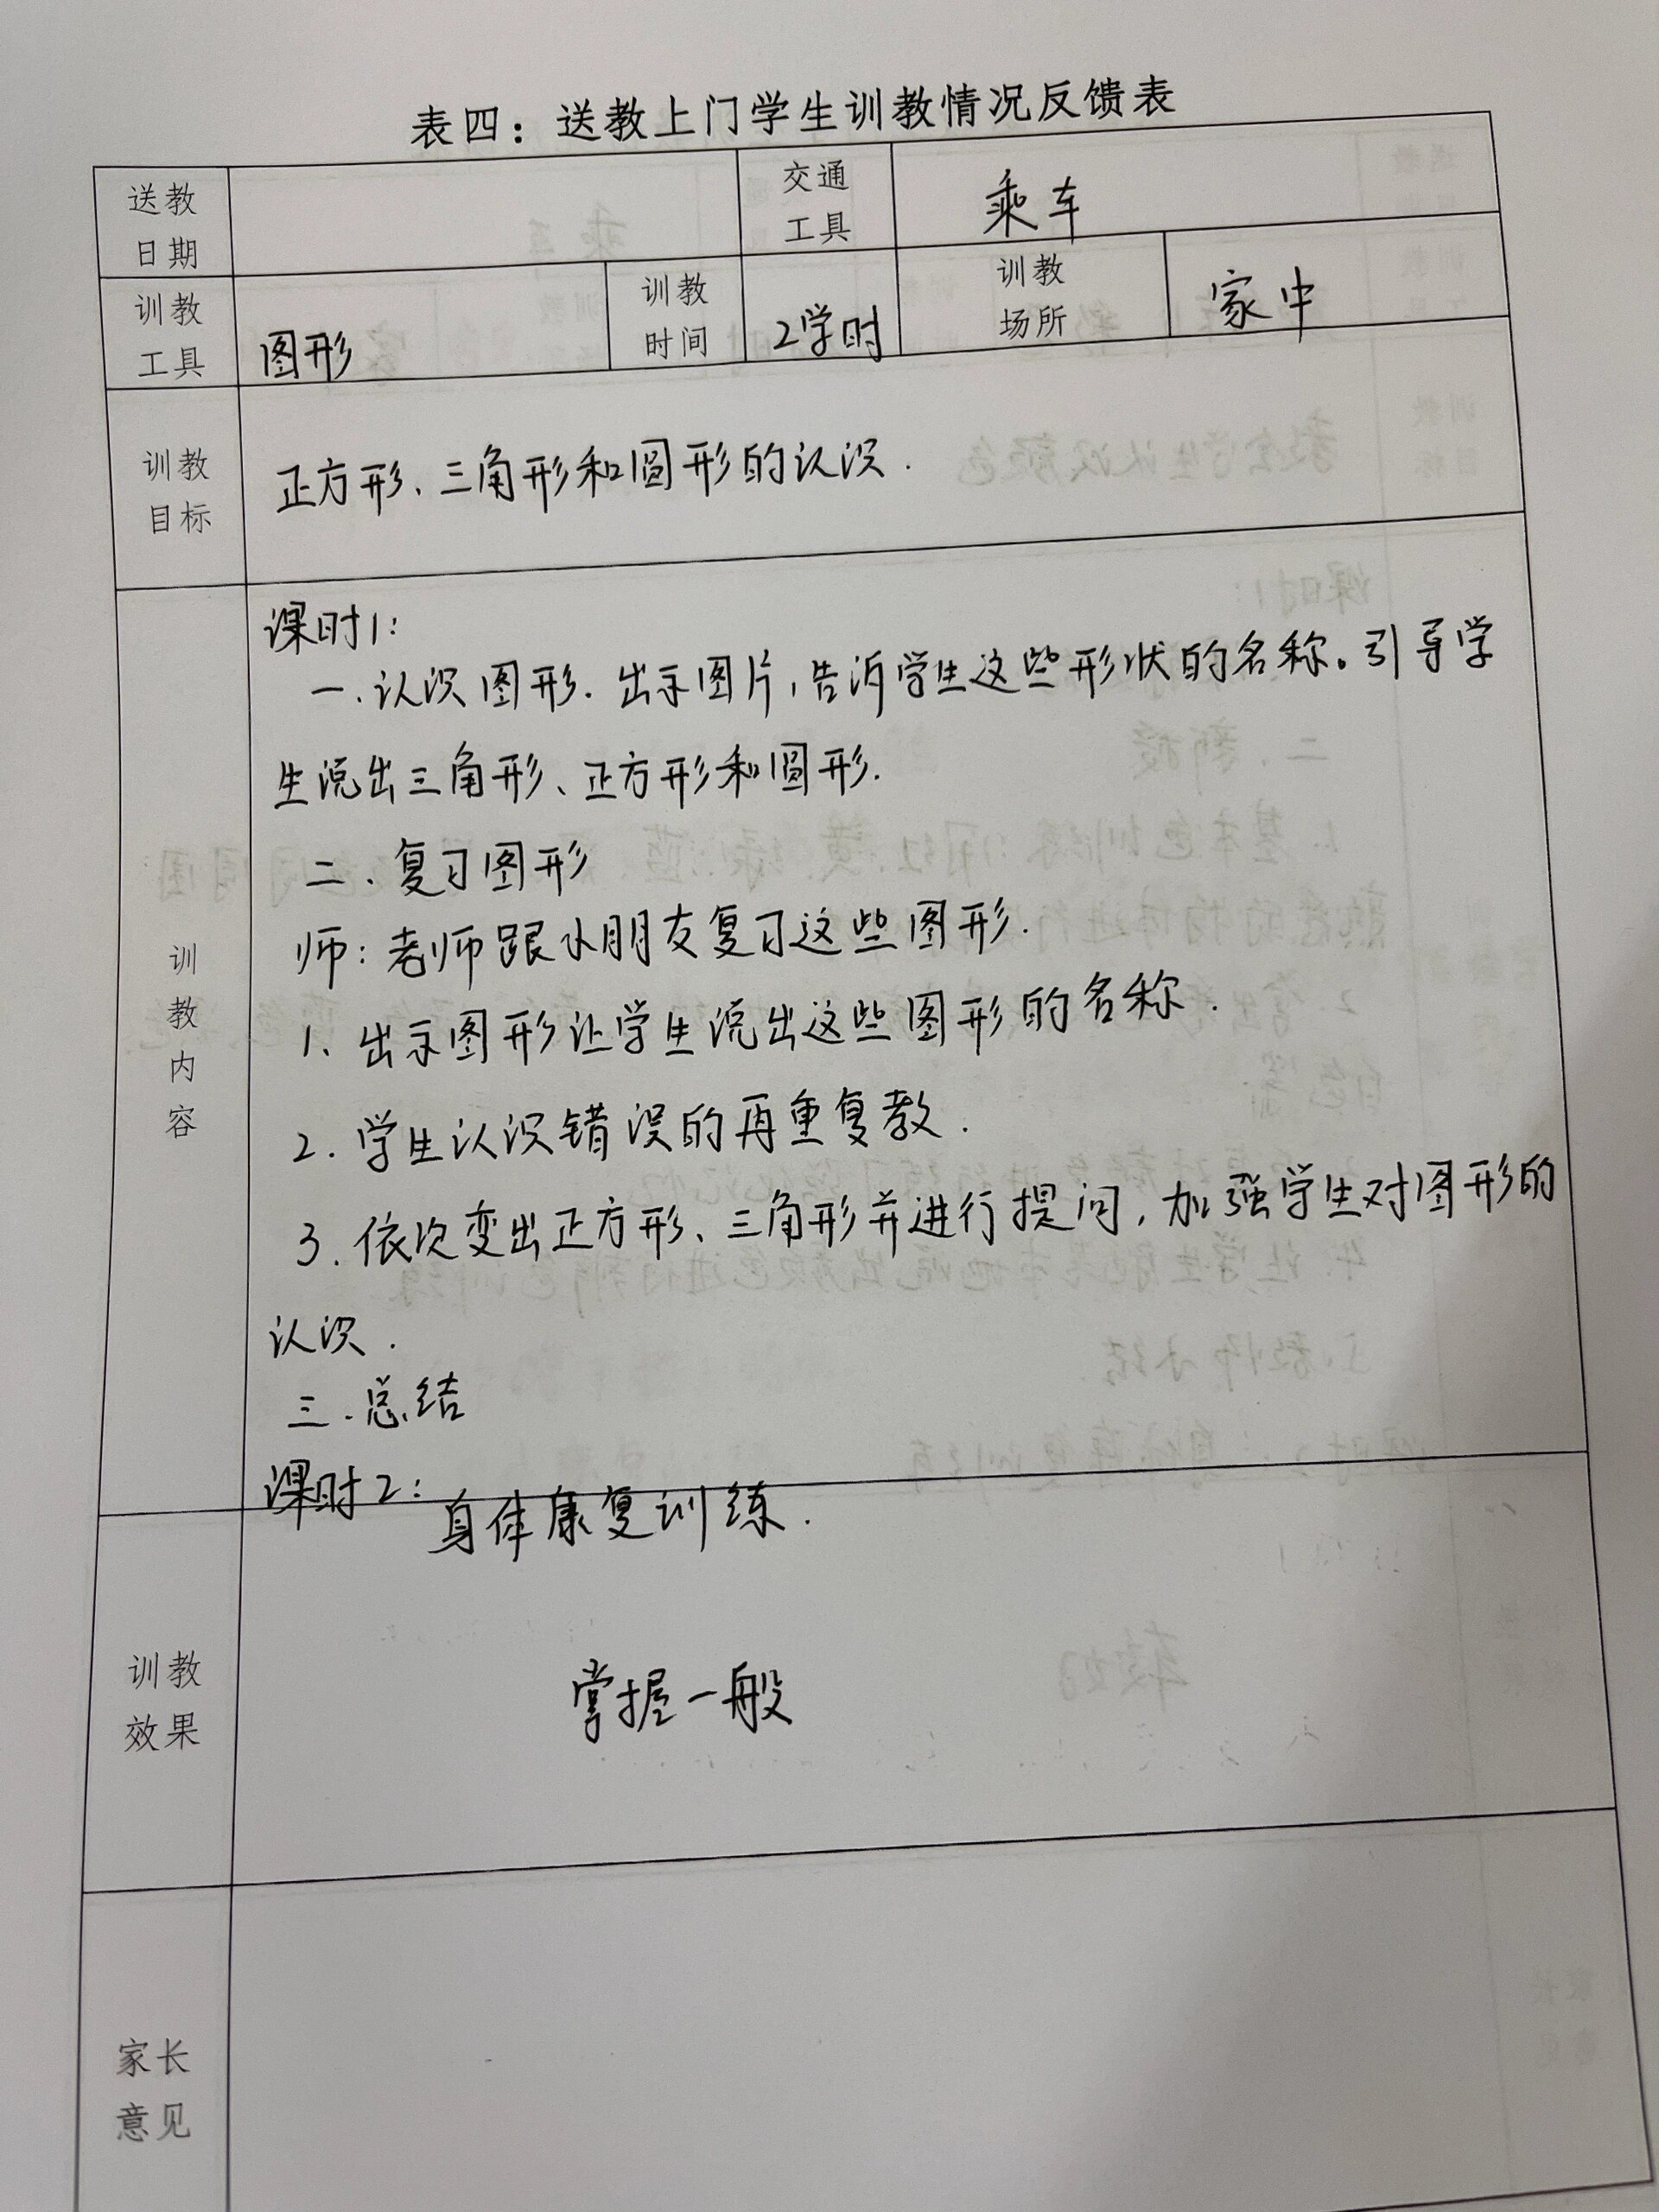 表四：送教上门学生训教情况反馈表
送教日期
交通工具
乘车
训教工具
图形
训教时间
2学时
训教场所
家中
训教目标
正方形、三角形和圆形的认识.
训教内容
课时1:
一.认识图形.出示图片,告诉学生这些形状的名称。引导学
生说出三角形、正方形和圆形.
二.复习图形
师:老师跟小朋友复习这些图形.
1、出示图形让学生说出这些图形的名称.
2.学生认识错误的再重复教.
3.依次变出正方形、三角形并进行提问,加强学生对图形的
认识.
三.总结
课时2:身体康复训练.
训教效果
掌握一般
家长意见